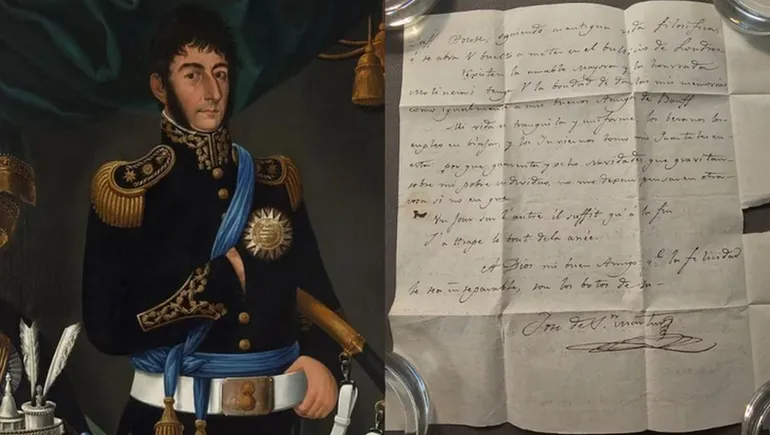 Duff House, siguiendo mi antigua vida filosofica,
ó se abra V buelto a meter en el bullicio de Londres
Existen la amable Mayora y la honrrada
tenga V la bondad de darles mis memorias
como igualmente a mis buenos Amigos de Banff
Mi vida es tranquila y uniforme los beranos los
empleo en biajar, y los Inviernos tomo mis Quarteles en
esta, porque quarenta y ocho Navidades que gravitan
sobre mi pobre individuo, no me dexan pensar en otra
cosa si no en que
Un jour sur l'autre il suffit qu'à la fin
J'attrape le bout de la
A Dios mi buen Amigo, qe la felicidad
le sea inseparable, son los botos de su
José de Sn Martin